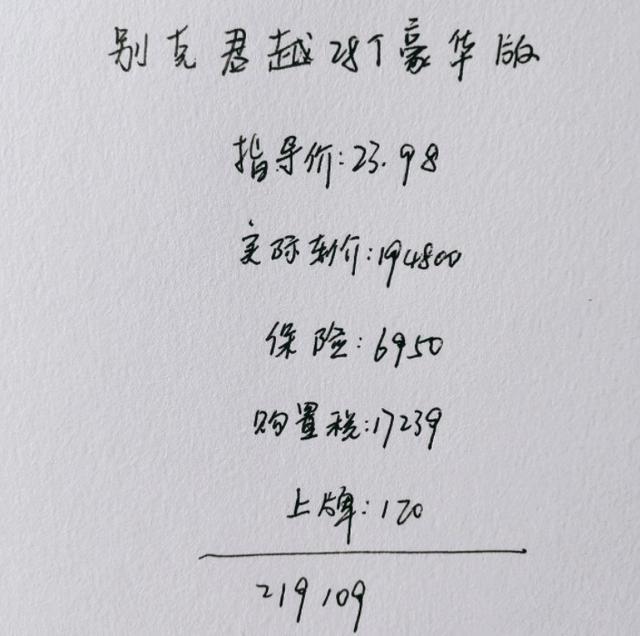 别克君越28T豪华版
指导价:23.98
实际车价:194800
保险:6950
购置税:17239
上牌:120
219109